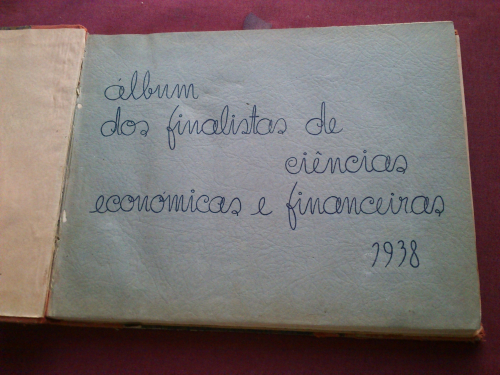 álbum
dos finalistas de
ciências
económicas e financeiras
1938